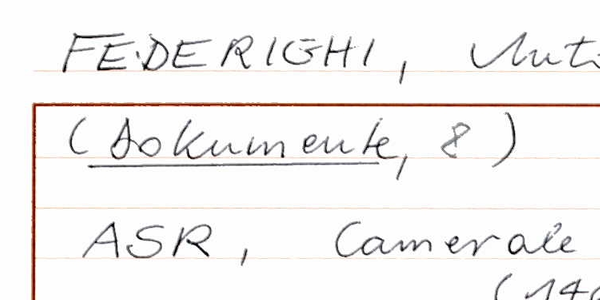 FEDERIGHI,
(Dokumente, 8)
ASR, Camerale